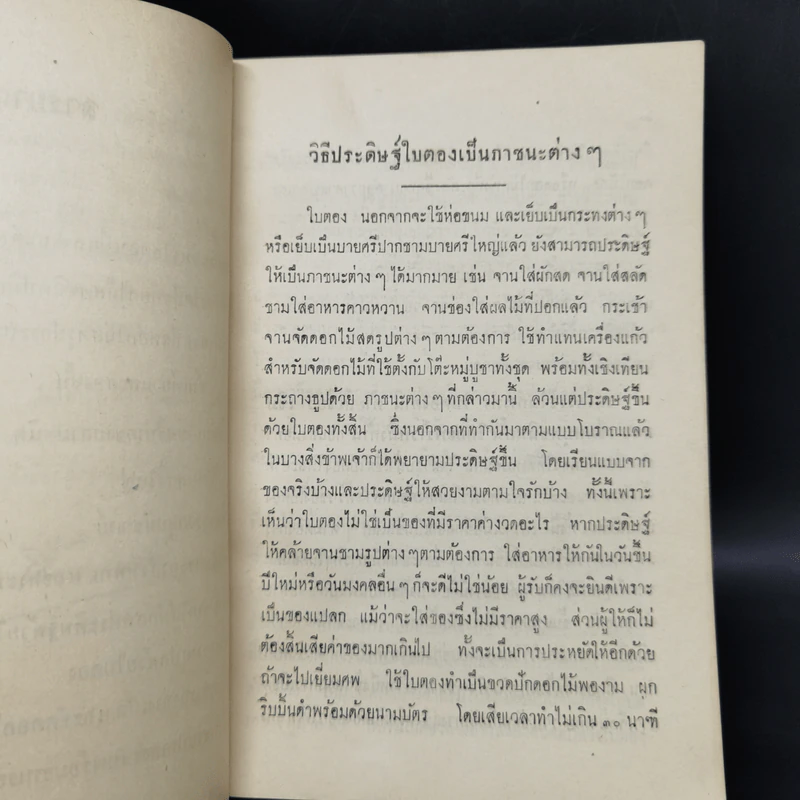 วิธีประดิษฐ์ใบตองเป็นภาชนะต่าง ๆ
ใบตอง นอกจากจะใช้ห่อขนม และเย็บเป็นกระทงต่าง ๆ
หรือเย็บเป็นบายศรีปากชามบายศรีใหญ่แล้ว ยังสามารถประดิษฐ์
ให้เป็นภาชนะต่าง ๆ ได้มากมาย เช่น จานใส่ผักสด จานใส่สลัด
ชามใส่อาหารคาวหวาน จานช่องใส่ผลไม้ที่ปอกแล้ว กระเช้า
จานจัดดอกไม้สดรูปต่าง ๆ ตามต้องการ ใช้ทำแทนเครื่องแก้ว
สำหรับจัดดอกไม้ที่ใช้ตั้งกับโต๊ะหมู่บูชาทั้งชุด พร้อมทั้งเชิงเทียน
กระถางธูปด้วย ภาชนะต่าง ๆ ที่กล่าวมานี้ ล้วนแต่ประดิษฐ์ขึ้น
ด้วยใบตองทั้งสิ้น ซึ่งนอกจากที่ทำกันมาตามแบบโบราณแล้ว
ในบางสิ่งข้าพเจ้าก็ได้พยายามประดิษฐ์ขึ้น โดยเรียนแบบจาก
ของจริงบ้างและประดิษฐ์ให้สวยงามตามใจรักบ้าง ทั้งนี้เพราะ
เห็นว่าใบตองไม่ใช่เป็นของที่มีราคาค่างวดอะไร หากประดิษฐ์
ให้คล้ายจานชามรูปต่าง ๆ ตามต้องการ ใส่อาหารให้กันในวันขึ้น
ปีใหม่หรือวันมงคลอื่น ๆ ก็จะดีไม่ใช่น้อย ผู้รับก็คงจะยินดีเพราะ
เป็นของแปลก แม้ว่าจะใส่ของซึ่งไม่มีราคาสูง ส่วนผู้ให้ก็ไม่
ต้องสิ้นเสียค่าของมากเกินไป ทั้งจะเป็นการประหยัดให้อีกด้วย
ถ้าจะไปเยี่ยมศพ ใช้ใบตองทำเป็นขวดปักดอกไม้พองาม ผูก
ริบบิ้นดำพร้อมด้วยนามบัตร โดยเสียเวลาทำไม่เกิน ๓๐ นาที